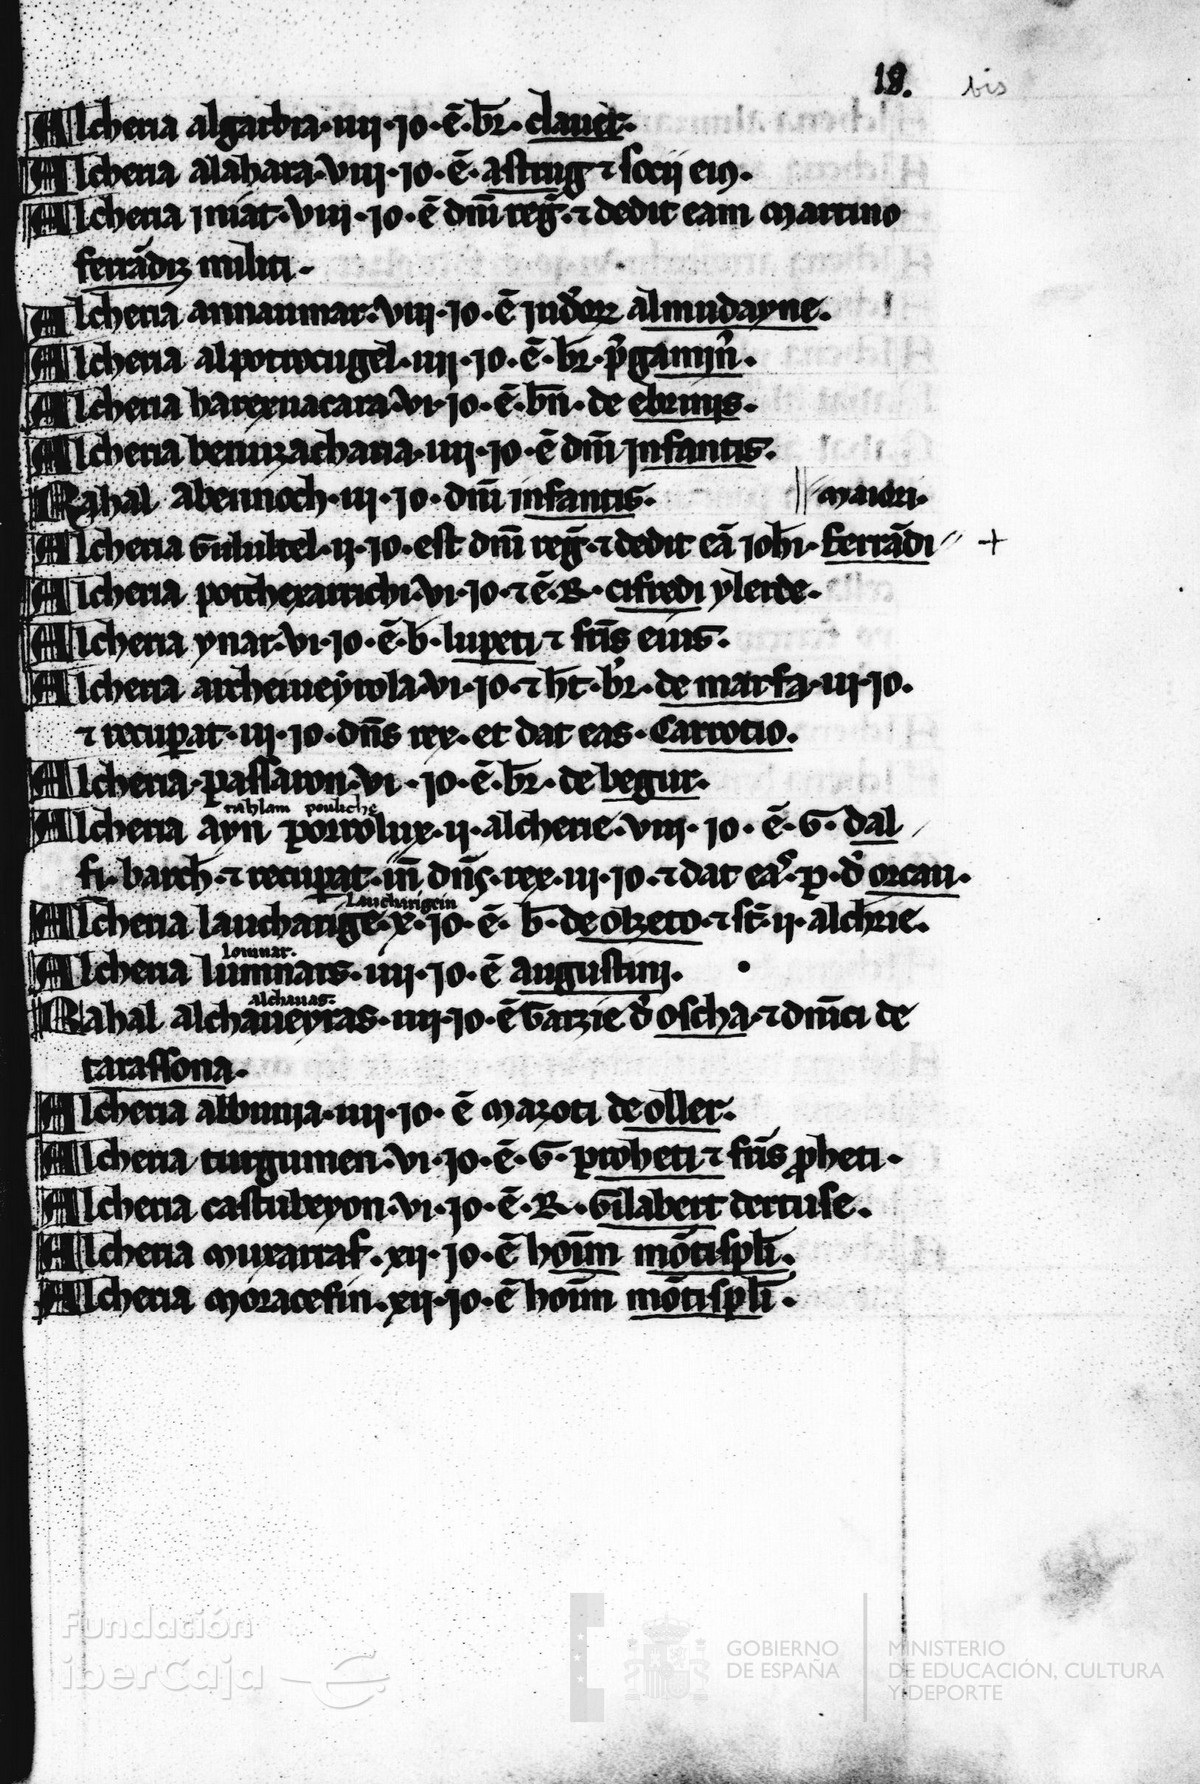 18. bis
Alcheria algarbia·iiij·jo·ē·br̄·clauer̄·
Alcheria alahara·viij·jo·ē·astrug ⁊ socij eiꝯ·
Alcheria jniat·viij·jo·ē dm̄ reḡ·⁊ dedit eam martino
ferrādiz militi·
Alcheria annaumar·viij·jo·ē judeoꝝ almudayne·
Alcheria alportocugel·iiij·jo·ē·br̄·
Alcheria harexnacara·vi·jo·ē·bn̄·de ebrinis·
Alcheria benizacharia·iiij·jo·ē dm̄ jnfantis·
Rahal abennoch·iij·jo·dm̄ infantis· // maiori·
Alcheria Gilultel·ij·jo·est dm̄ reḡ·⁊ dedit eā joh̄i·ferrādi // +
Alcheria porchexarrichi·vi·jo·⁊ ē·R·cifredi ylerde·
Alcheria ynar·vi·jo·ē·b·lupeti ⁊ fr̄is eius·
Alcheria archemeyrola·vi·jo·⁊ h̄t·br̄·de marfa·iij·jo·
⁊ recuꝑat·iij·jo·dn̄s rex·et dat eas·Carrocio·
Alcheria·passaron·vi·jo·ē·br̄·de begur·
rahlam pouliche
Alcheria ayn portolux·ij·alcherie·viij·jo·ē·G·dal /
fi·barch̄·⁊ recuꝑat·in̄ dn̄s·rex·iij·jo·⁊ dat eas·p·d' orcau·
Laucharigein
Alcheria laucharige·x·jo·ē·b̄·de olzeto·⁊ st̄·ij·alch̄rie·
lominar·
Alcheria luminars·iiij·jo·ē augustini·
alchauas·
Rahal alchaueyras·iiij·jo·ē Garzie d' oscha·⁊ dn̄ici de
tarassona·
Alcheria albunia·iiij·jo·ē mazoti de oller·
Alcheria turgumen·vi·jo·ē·G·proheti ⁊ fr̄is ꝓheti·
Alcheria castubeyon·vi·jo·ē·R·Gilabert dertuse·
Alcheria muxarraf·xij·jo·ē hoīm mōtispl̄i·
Alcheria moracefin·xij·jo·ē hoīm mōtispl̄i·
Fundación
iberCaja
GOBIERNO
DE ESPAÑA
MINISTERIO
DE EDUCACIÓN, CULTURA
Y DEPORTE